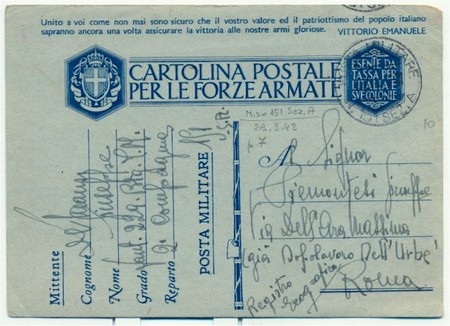 Unito a voi come non mai sono sicuro che il vostro valore ed il patriottismo del popolo italiano
sapranno ancora una volta assicurare la vittoria alle nostre armi gloriose. VITTORIO EMANUELE
CARTOLINA POSTALE
PER LE FORZE ARMATE
ESENTE DA
TASSA PER
L'ITALIA E
SVE COLONIE
POSTA MILITARE
151 SEZ. A
151 Sez. A
p. 7
Al Signor
Via Dell'Ara Massima
(già Dopolavoro Dell'Urbe)
Roma
Registro
Mittente
Cognome
Nome Giuseppe
Grado
Reparto Compagnia
POSTA MILITARE 151